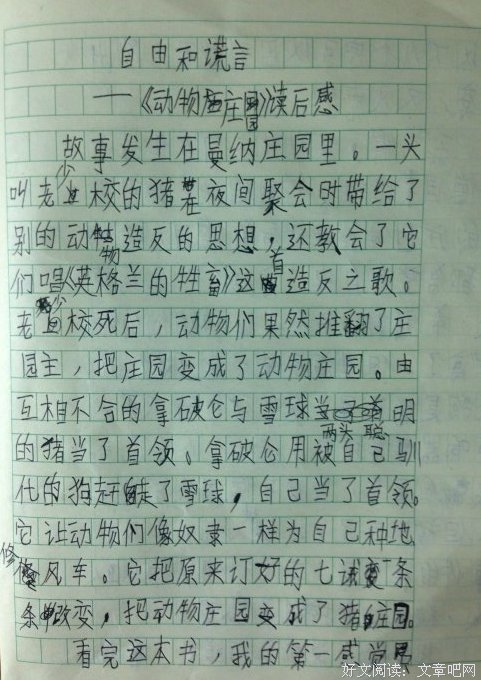 自由和谎言
——《动物庄园》读后感
故事发生在曼纳庄园里。一头
叫老少校的猪在夜间聚会时带给了
别的动物造反的思想，还教会了它
们唱《英格兰的牲畜》这首造反之歌。
老少校死后，动物们果然推翻了庄
园主，把庄园变成了动物庄园。由
互相不合的拿破仑与雪球两头聪明
的猪当了首领。拿破仑用被自己驯
化的狗赶走了雪球，自己当了首领。
它让动物们像奴隶一样为自己种地
修风车。它把原来订好的七诫条
条改变，把动物庄园变成了猪庄园。
看完这本书，我的第一感觉是
好文阅读：文章吧网